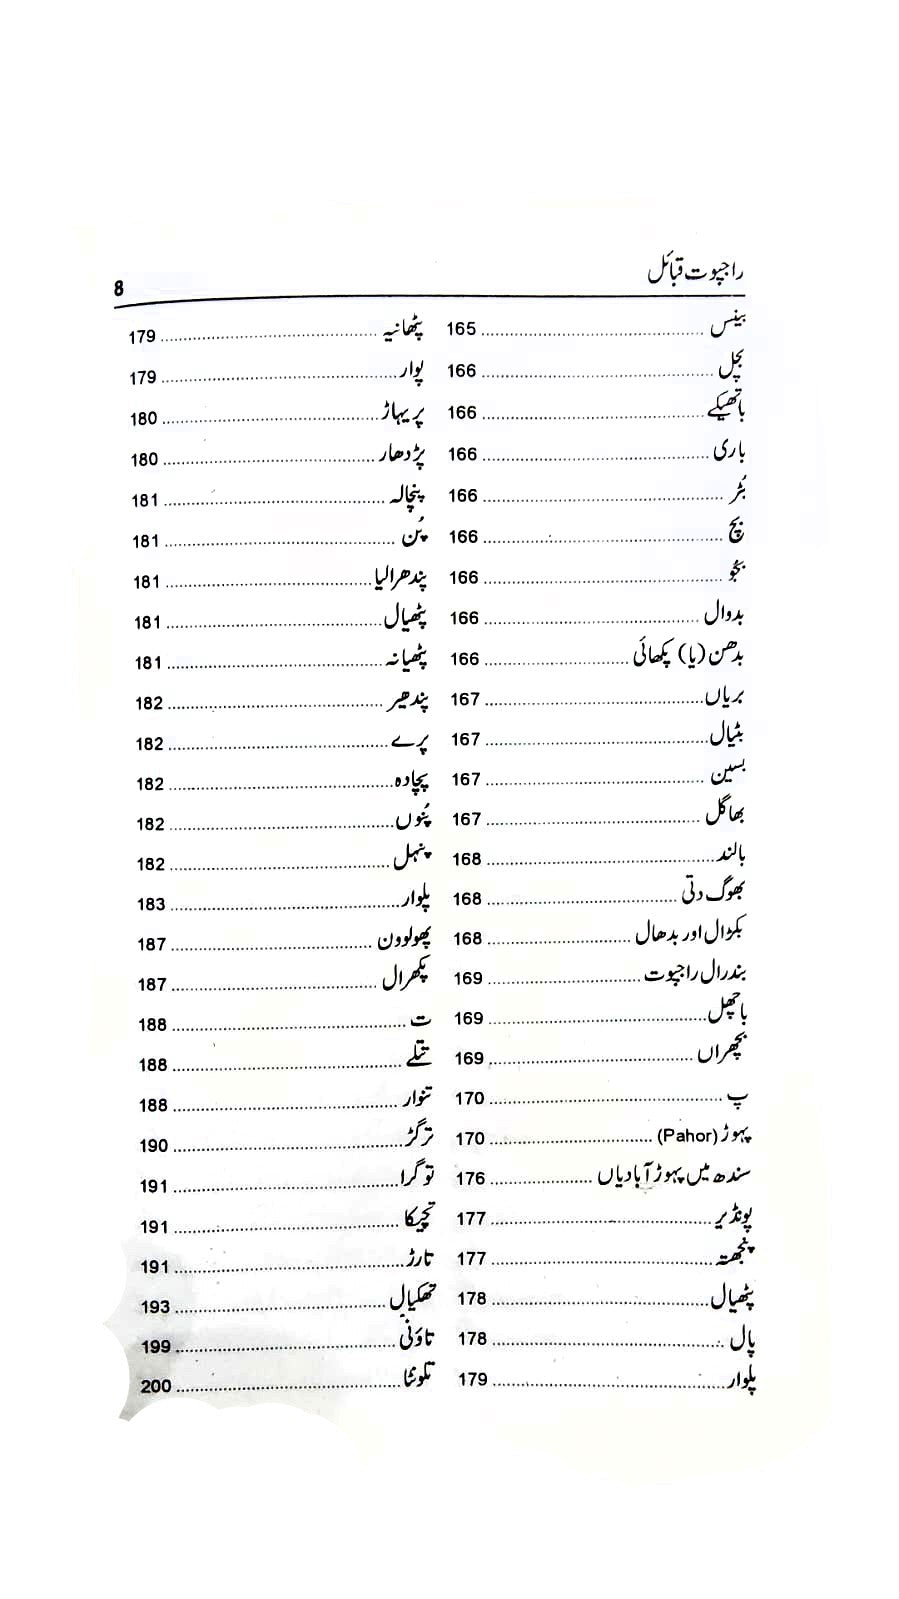 راجپوت قبائل
8
بینس 165
بچل 166
باتھیکے 166
باری 166
بُٹر 166
بچ 166
بجو 166
بدوال 166
بدھن (یا) پکھائی 166
بریاں 167
بٹیال 167
بسین 167
بھاگل 167
بالند 168
بھوگ دتی 168
بکڑال اور بدھال 168
بندرال راجپوت 169
باچھل 169
بچھراں 169
پ 170
پہوڑ (Pahor) 170
سندھ میں پہوڑ آبادیاں 176
پونڈیر 177
پنجھتہ 177
پٹھیال 178
پال 178
پلوار 179
پٹھانیہ 179
پوار 179
پریہاڑ 180
پڑدھار 180
پنچالہ 181
پُن 181
پندھرالیا 181
پٹھیال 181
پٹھیانہ 181
پندھیر 182
پرے 182
پچادہ 182
پُنوں 182
پنہل 182
پلوار 183
پھولوون 187
پکھرال 187
ت 188
تتلے 188
تنوار 188
ترگڑ 190
توگرا 191
تچیکا 191
تارڑ 191
تھکیال 193
تاؤنی 199
تلونٹا 200